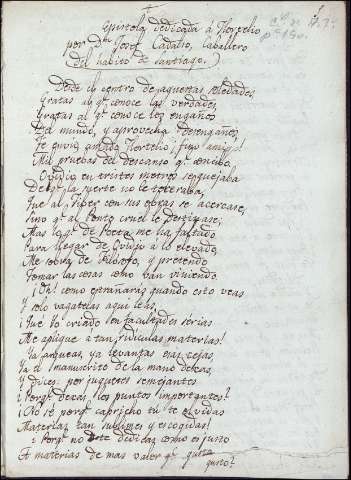 Epistola dedicada á Hortelio
por Dn Josef Cadalso, Caballero
del habito de Santiago.
Desde el centro de aquestas soledades,
Gratas al qe conoce las verdades,
Gratas al qe conoce los engaños
Del mundo, y aprovecha desengaños,
Te envio, amado Hortelio, ¡fino amigo!
Mil pruebas del descanso qe concibo.
Ovidio en tristes metros se quejaba
De qe la suerte no le toleraba,
Que al Tiber con sus obras se acercase,
Sino qe al Ponto cruel le destinase;
Mas lo qe de Poeta me ha faltado
Para llegar de Ovidio á lo elevado,
Me sobra de Filosofo, y pretendo
Tomar las cosas como van viniendo.
¡Oh! como extrañarás quando esto veas
Y solo vagatelas aqui leas,
¡Que yo criado en facultades serias
Me aplique á tan ridiculas materias!
Ya arqueas, ya levantas esas cejas,
Ya el manuscrito de la mano dexas,
Y dices: por juguetes semejantes
¿Porqe dexas los puntos importantes?
¡No sé porqe capricho tú te olvidas
Materias tan sublimes y escogidas!
¿Porqe no te dedicas como es justo
A materias de mas valor qe
gusto?